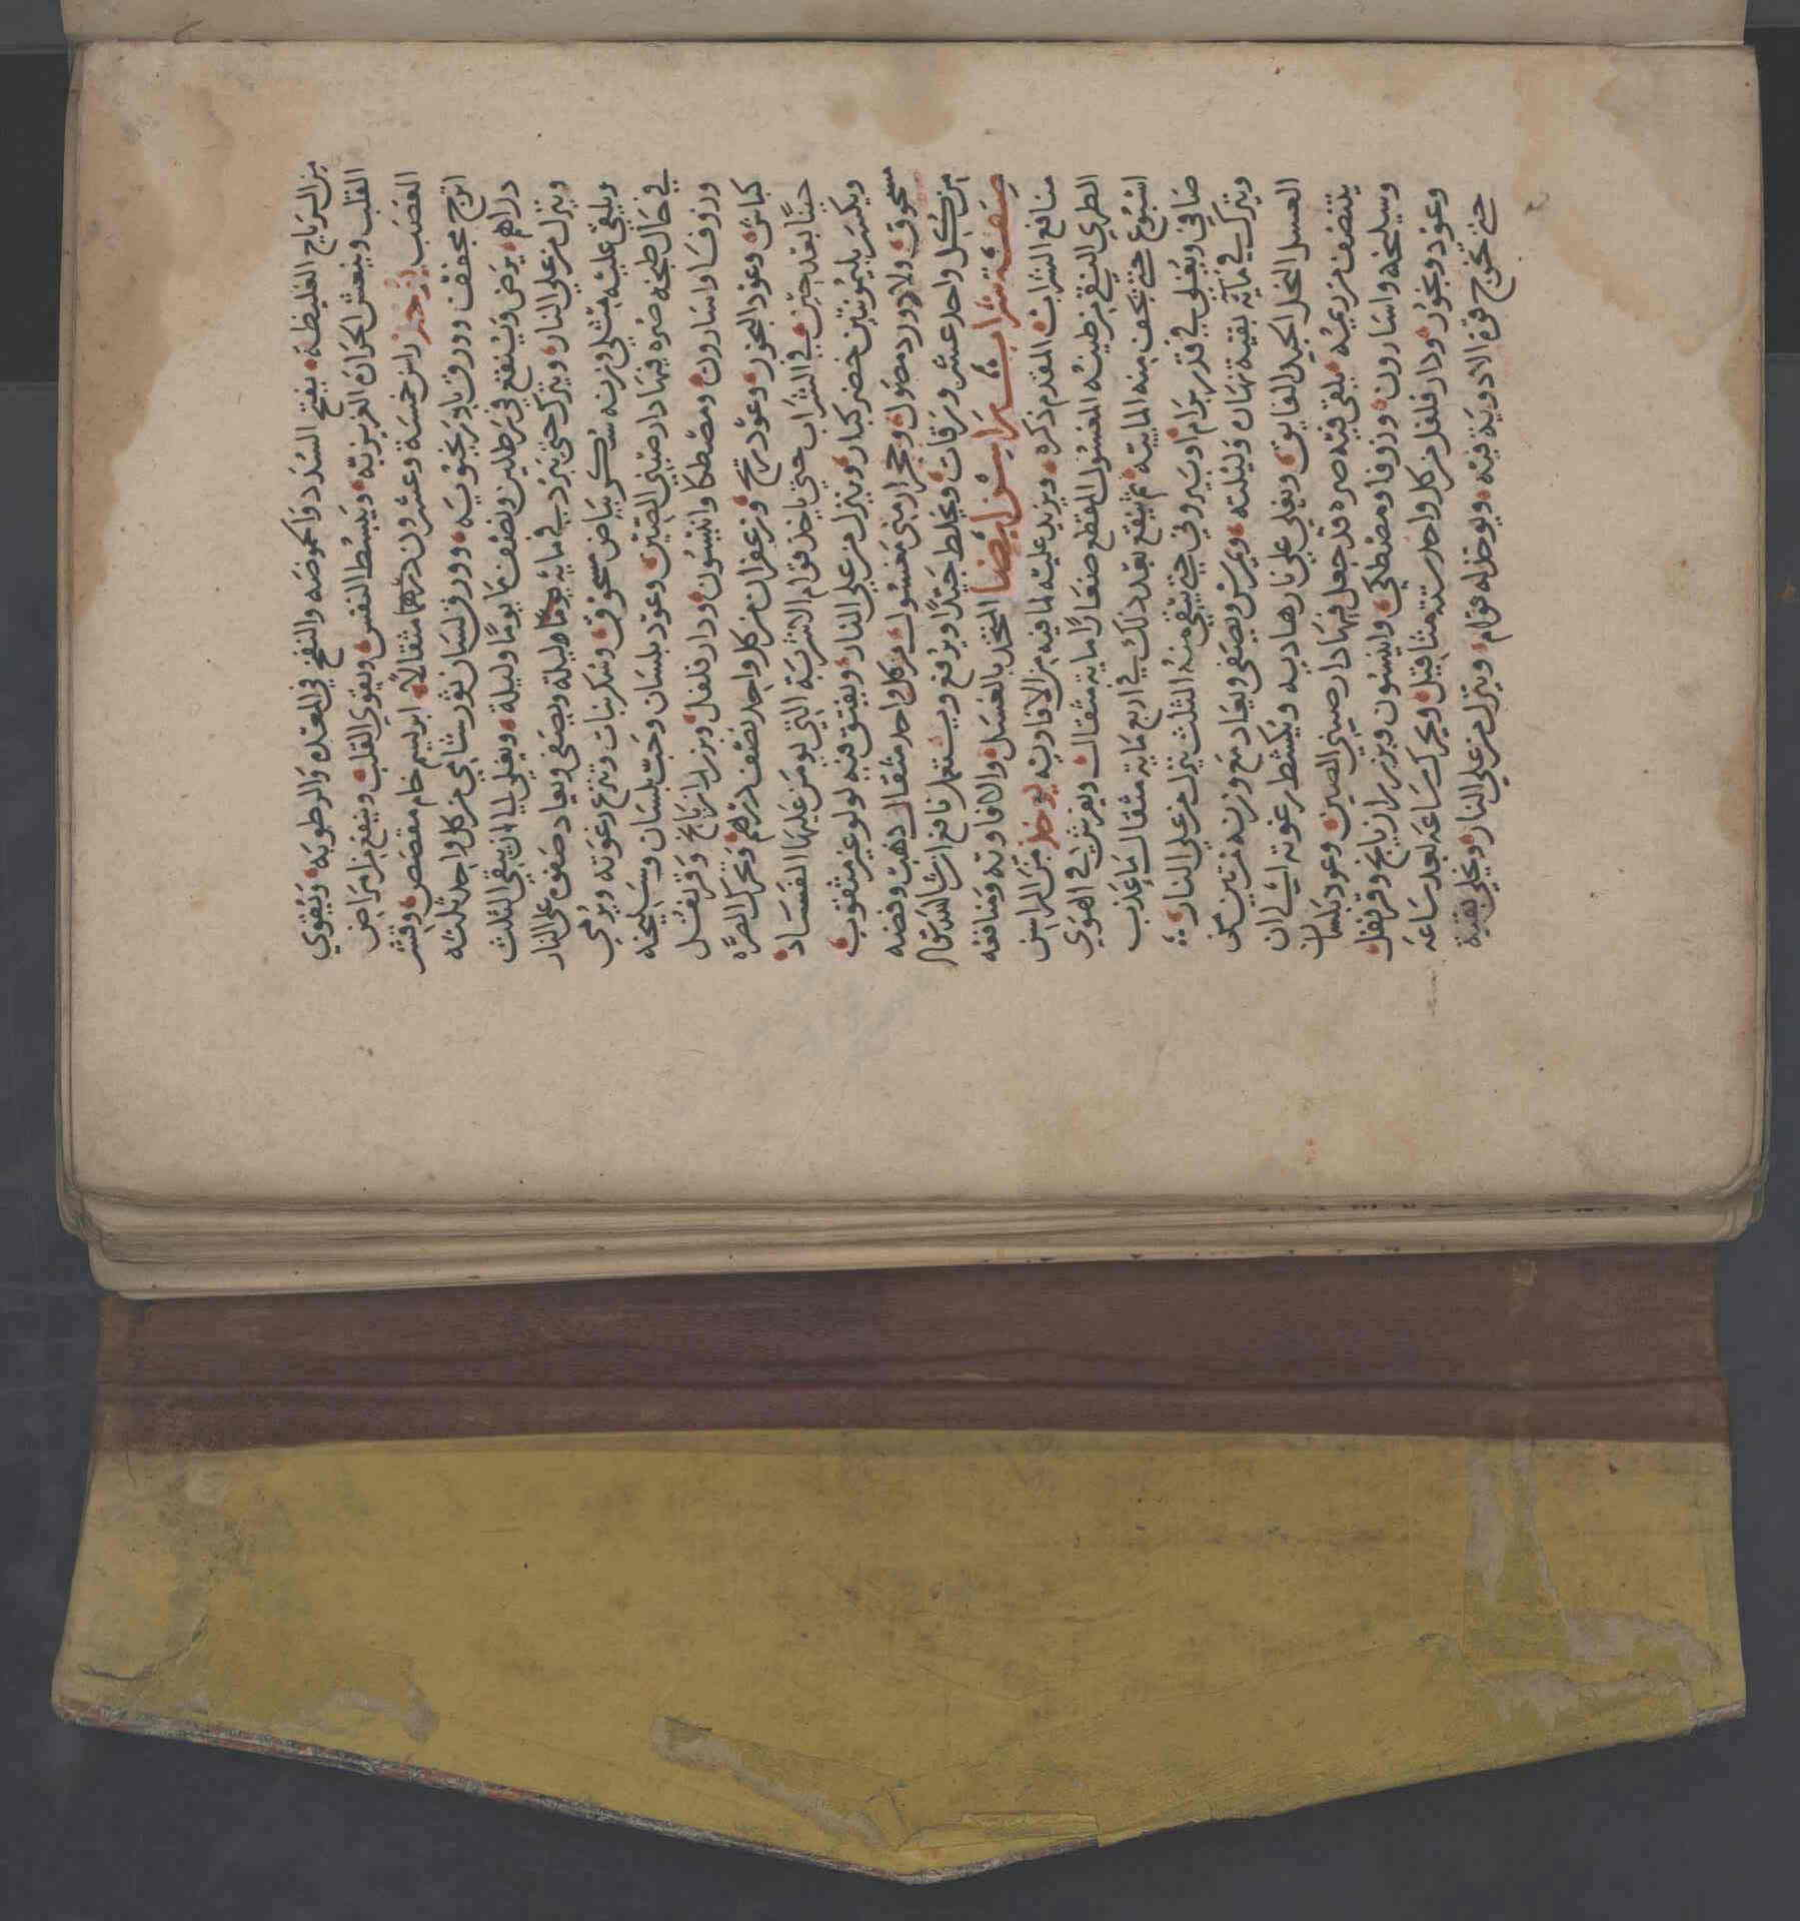 من الرياح الغليظة، يفتح السدد والحموضه والنفخ في المعده والرطوبه، ويقوي
القلب وينعش الحراره الغريزيه، ويبسط النفس، ويقوي القلب وينفع من امراض
العصب اخر خمسة وعشرون درهما مثقالا، ابريسم خام مقصص، وقشر
اترج مجفف وورق بادرنجويه، وورق لسان ثور شامي من كل واحد ثلثه
دراهم، يرض وينقع في رطلين ونصف ما يوما وليلة، ويغلي الى ان يبقى الثلث
وينزل من على النار، ويترك حتى يبرد في مائه يوما وليلة ويصفى ويعاد صفوه على النار
ويلقى عليه مثلي وزنه سكر بياض مسحوق، وسكر نبات وتنزع رغوته ويرمي
في حال طبخه صره فيها دار صيني الصين، وعود بلسان وحب بلسان وسليخه
وزوفا واسارون، ومصطكا وانيسون، ودار فلفل، وبزر رازيانج، وقرنفل
كباش، وعود البخور، وعود ريح، وزعفران من كل واحد نصف درهم، وتحرك الصره
حينا بعد حين، في الشراب حتي ياخذ قوام الاشربه التي يومن عليها الفساد،
ويكسر بليمونتين خضر كبار، وينزل من علي النار، ويفتق فيه لولو غير مثقوب،
مسحوق، ولازورد مصول، وحجر ارمني مغسول، من كل واحد مثقال، ذهب وفضه
من كل واحد عشر ورقات، ويخلط جيدا، ويرفع ويستعمل نافع ان شا الله تعالى
صفة شراب الراسن ايضا المتخذ بالعسل، والافاويه ومنافعه
منافع الشراب، المقدم ذكره، ويزيد عليه لما فيه من الافاويه يوخذ من الراسن
الطري النقي من طينه المغسول المقطع صغارا مايه مثقال، ويفرش في الهوي
اسبوع حتي تجف منه المائيه، ثم ينقع بعد ذلك في اربع مايه مثقال ما عذب
صافي ويغلي في قدر برام، او بيروني حتي يبقي منه الثلث ينزل من علي النار
ويترك في مائه بقية نهاره وليلته، ويمرس ويصفى ويعاد مع وزنه مرتين من
العسل النحل الجيد الفايق، ويغلي علي نار هاديه ويكشط رغوته الي ان
ينتصف من رميه، يلقي فيه صره قد جعل فيها دار صيني الصين، وعود بلسان
وسليخه واسارون، وزوفا ومصطكي، وانيسون وبزر رازيانج وقرنفل،
وعود وبخور، ودار فلفل من كل واحد ستة مثاقيل، ويحرك ساعه بعد ساعه
حتى تخرج قوة الادوية فيه، ويوخذ له قوام، وينزل من علي النار، ويخلي بقية